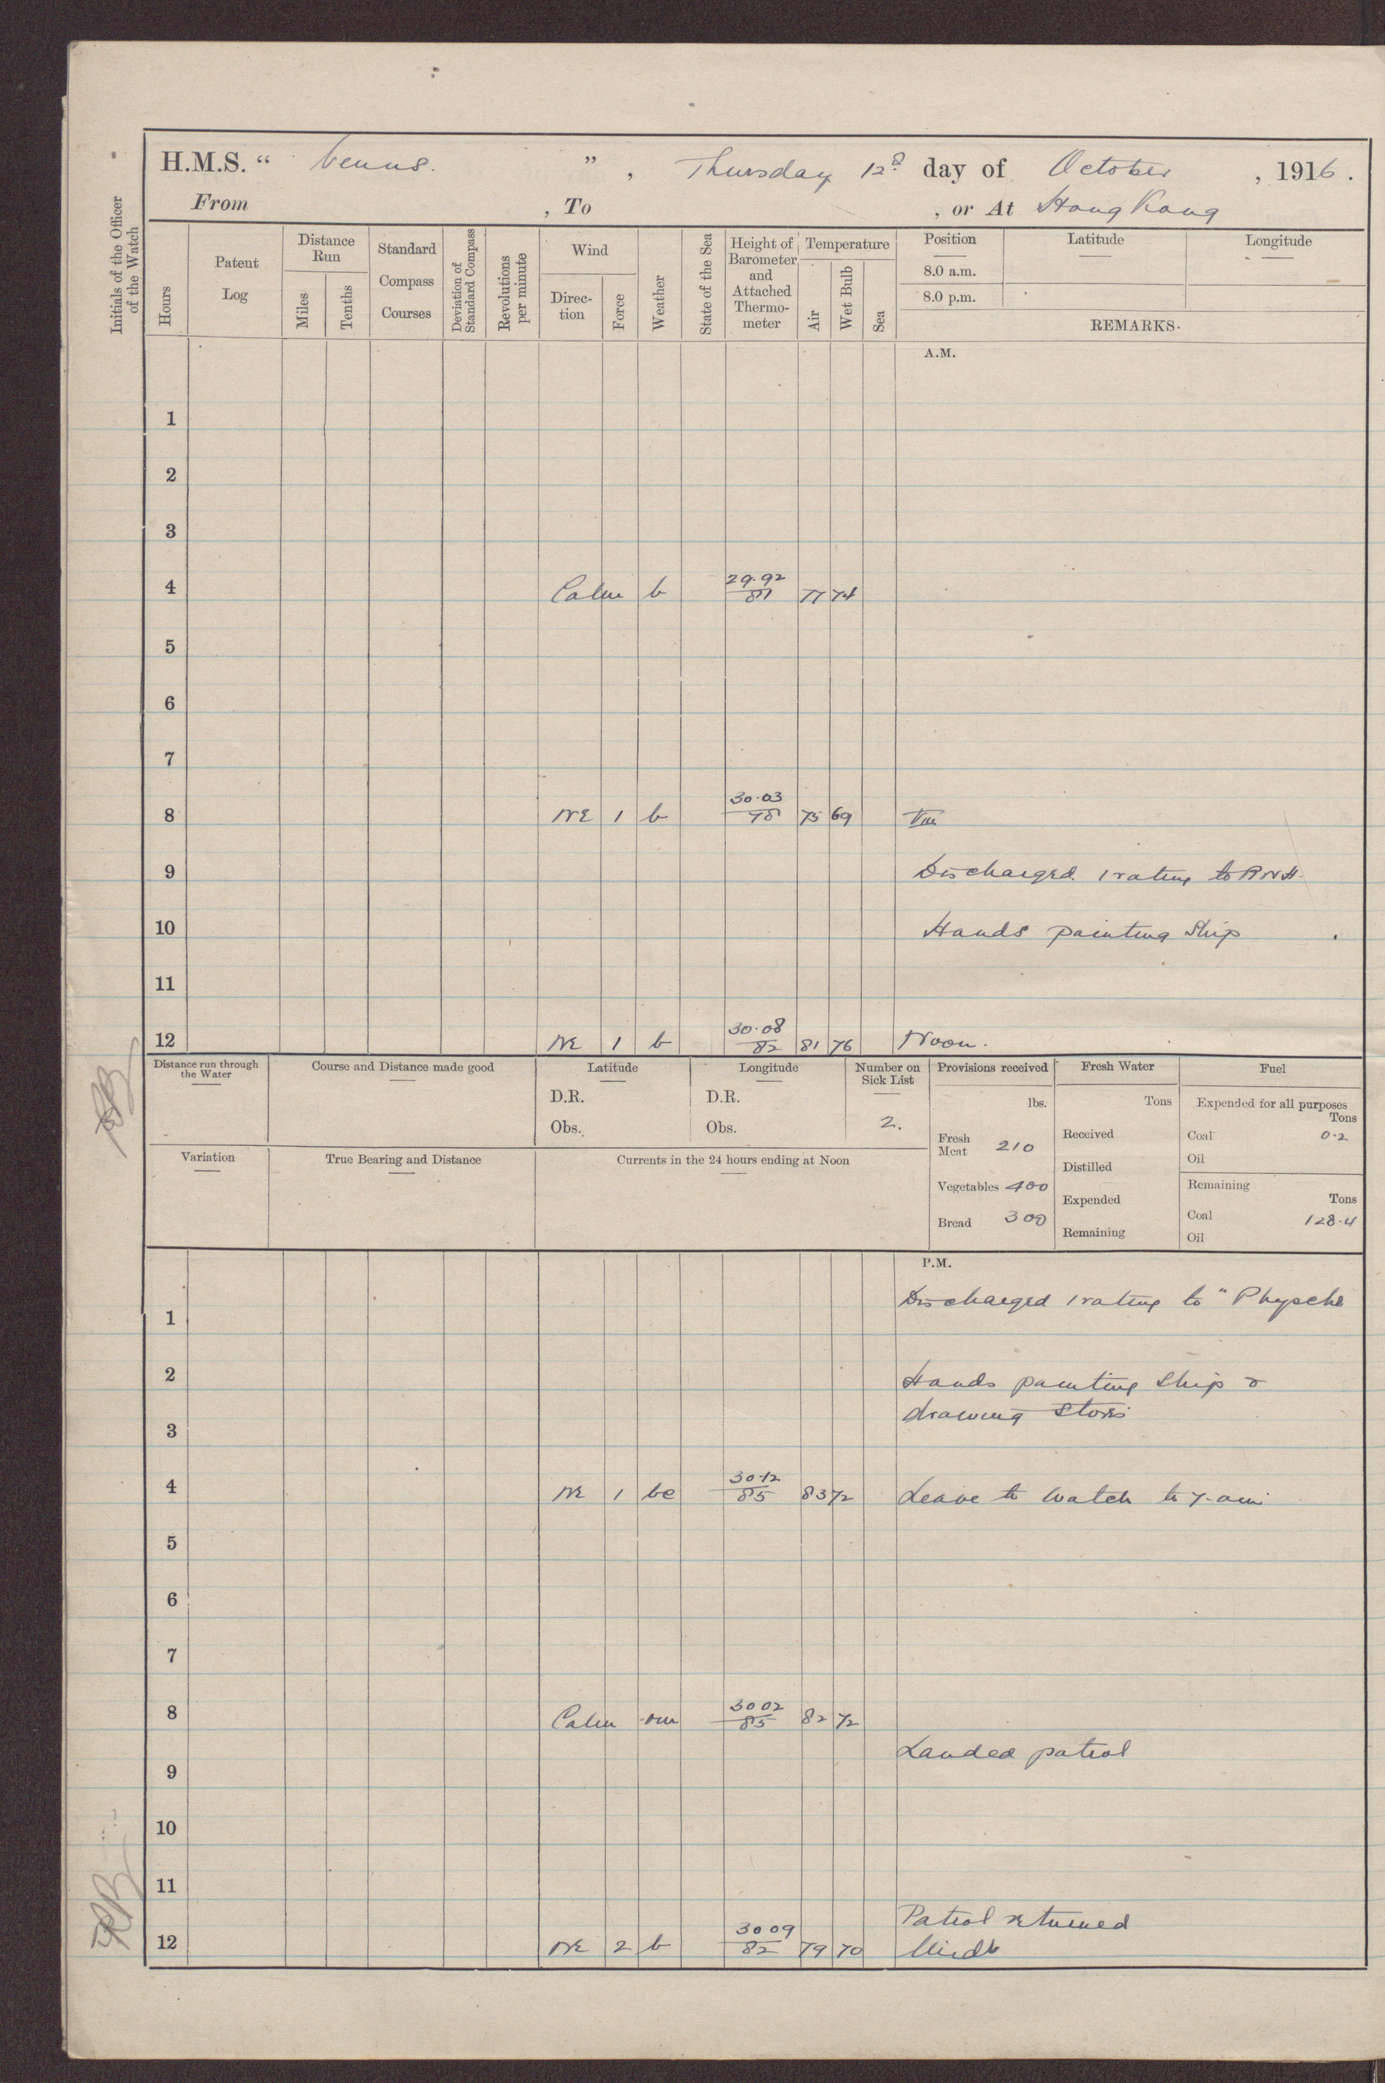 H.M.S. “ Venus. ”, Thursday 12th day of October, 1916.
From , To , or At Hong Kong
Initials of the Officer of the Watch
Hours
Patent Log
Distance Run
Miles
Tenths
Standard Compass Courses
Deviation of Standard Compass
Revolutions per minute
Wind
Direc-tion
Force
Weather
State of the Sea
Height of Barometer and Attached Thermo-meter
Temperature
Air
Wet Bulb
Sea
Position Latitude Longitude
8.0 a.m.
8.0 p.m.
REMARKS.
A.M.
1
2
3
4 Calm b 29.92/81 77 74
5
6
7
8 NE 1 b 30.03/78 75 69 VIII
9 Discharged 1 rating to RNH
10 Hands painting Ship
11
12 NE 1 b 30.08/82 81 76 Noon.
Distance run through the Water
Course and Distance made good
Latitude
D.R.
Obs.
Longitude
D.R.
Obs.
Number on Sick List
2.
Provisions received
lbs.
Fresh Meat 210
Vegetables 400
Bread 300
Fresh Water
Tons
Received
Distilled
Expended
Remaining
Fuel
Expended for all purposes
Tons
Coal 0.2
Oil
Remaining
Tons
Coal 128.4
Oil
Variation
True Bearing and Distance
Currents in the 24 hours ending at Noon
P.M.
Discharged 1 rating to "Physche
1
2 Hands painting Ship &
drawing Stores
3
4 NE 1 bc 30.12/85 83 72 Leave to Watch to 7. am
5
6
7
8 Calm om 30 02/85 82 72
Landed patrol
9
10
11
Patrol returned
12 NE 2 b 30 09/82 79 70 Midt